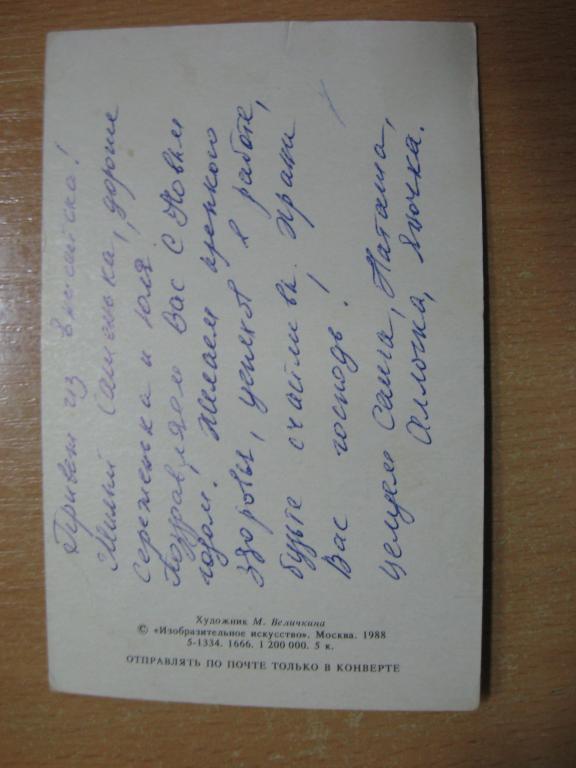 Привет из Енисейска!
Милый Сашенька, дорогие
Сереженька и Юля.
Поздравляем Вас с Новым
годом! Желаем крепкого
здоровья, успехов в работе,
будьте счастливы. Храни
Вас господь!
целуем Саша, Наташа,
Аллочка, Яночка.
Художник М. Величкина
© «Изобразительное искусство». Москва. 1988
5-1334. 1666. 1 200 000. 5 к.
ОТПРАВЛЯТЬ ПО ПОЧТЕ ТОЛЬКО В КОНВЕРТЕ